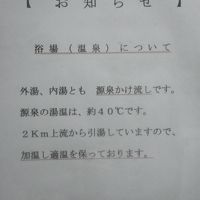 【 お 知 ら せ 】
浴場（温泉）について
外湯、内湯とも 源泉かけ流しです。
源泉の湯温は、約４０℃です。
２Ｋｍ上流から引湯していますので、
加温し適温を保っております。